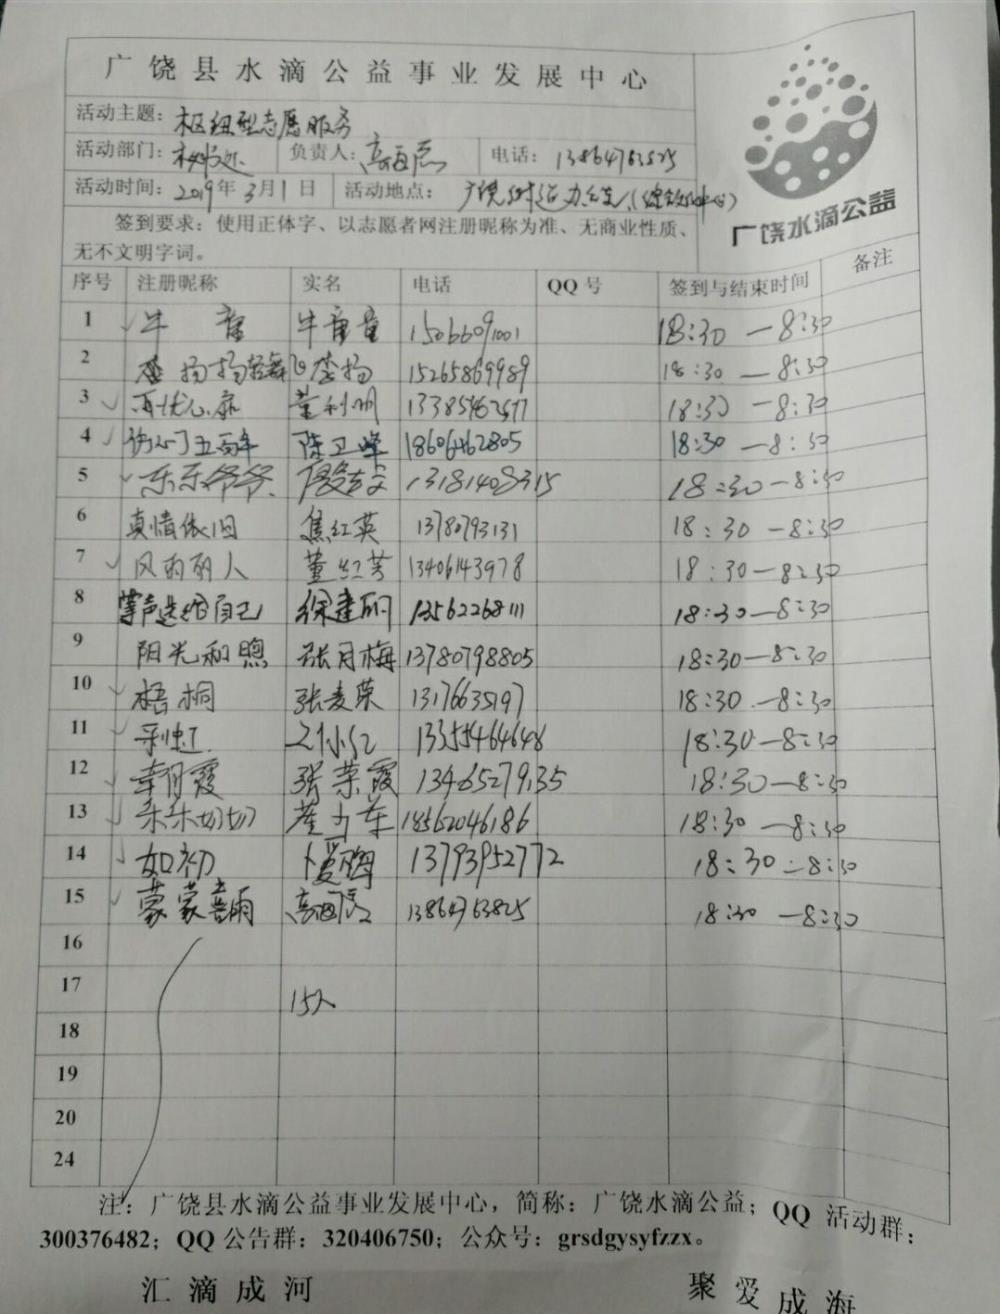 广饶县水滴公益事业发展中心
活动主题：枢纽型志愿服务
活动部门：秘书处 负责人： 电话：13864763825
活动时间：2019年3月1日 活动地点：广饶
签到要求：使用正体字、以志愿者网注册昵称为准、无商业性质、
无不文明字词。
广饶水滴公益
序号 注册昵称 实名 电话 QQ号 签到与结束时间 备注
1 牛 牛 15066091001 18:30—8:30
2 扬扬 李扬 15265869989 18:30—8:30
3 董利明 18:30—8:30
4 陈卫峰 18606462805 18:30—8:30
5 东东爷爷 13181408315 18:30—8:30
6 真情依旧 焦红英 13780793131 18:30—8:30
7 风雨丽人 董红芳 13406143978 18:30—8:30
8 掌声送给自己 徐建丽 13562268111 18:30—8:30
9 阳光和煦 张月梅 13780798805 18:30—8:30
10 梧桐 张麦荣 18:30—8:30
11 彩虹 刘小红 13355464648 18:30—8:30
12 张荣霞 13465279135 18:30—8:30
13 18562046186 18:30—8:30
14 如初 13793952772 18:30—8:30
15 蒙蒙喜雨 13864763825 18:30—8:30
16
17 15人
18
19
20
24
注：广饶县水滴公益事业发展中心，简称：广饶水滴公益；QQ 活动群：
300376482；QQ公告群：320406750；公众号：grsdgysyfzzx。
汇滴成河 聚爱成海